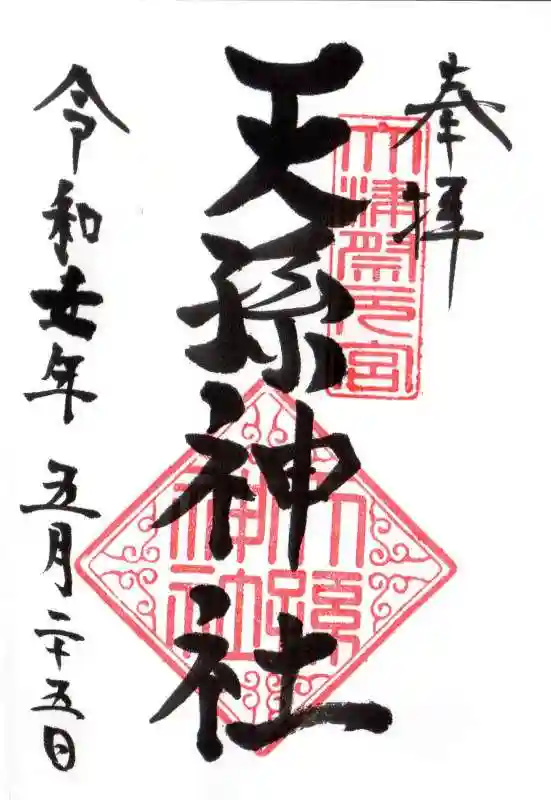 奉拝
大津祭 宮
天孫神社
天孫神社
令和 年 五月二十五日